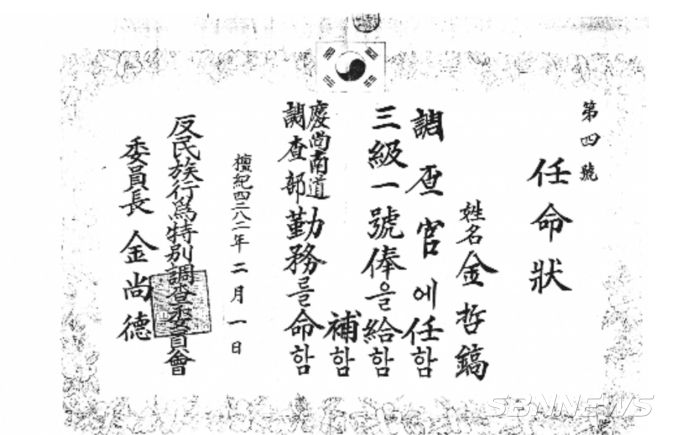 第四號
任命狀
姓名 金哲鎬
調查官에任함
三級一號俸을給함
補함
慶尚南道
調查部勤務를命함
檀紀四二八二年二月一日
反民族行爲特別調查委員會
委員長 金尚德
SBNNEWS